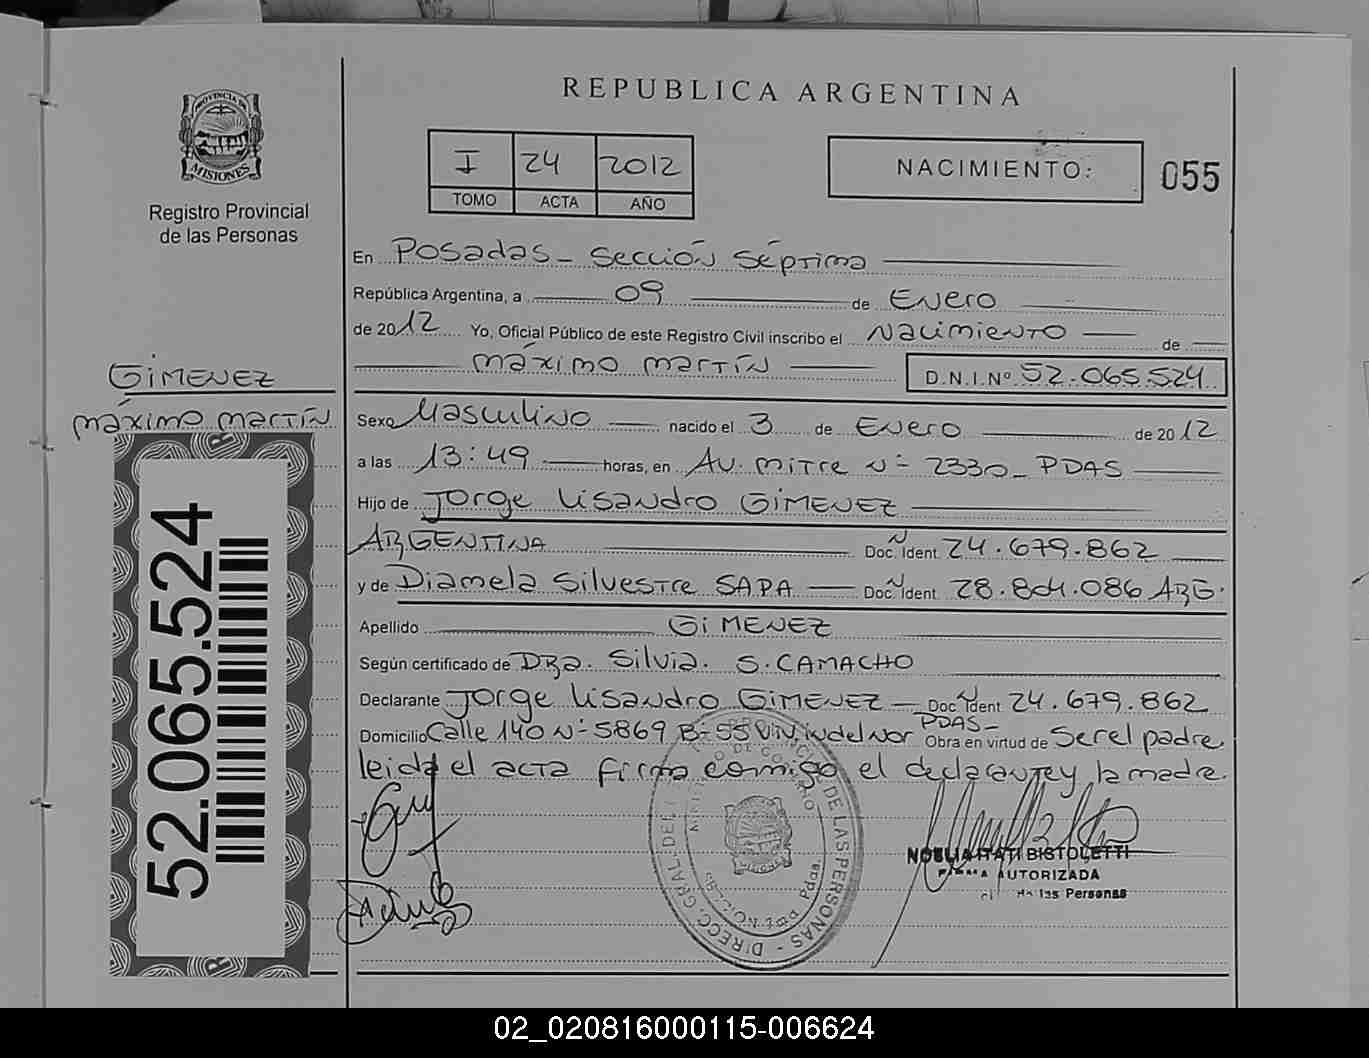 REPUBLICA ARGENTINA
PROVINCIA DE
MISIONES
Registro Provincial
de las Personas
I 24 2012
TOMO ACTA AÑO
NACIMIENTO: 055
En Posadas - Sección Séptima
República Argentina, a 09 de Enero
de 2012 Yo, Oficial Público de este Registro Civil inscribo el Nacimiento de
máximo martín D.N.I.Nº 52.065.524
GIMENEZ
máximo martín
Sexo Masculino nacido el 3 de Enero de 2012
a las 13:49 horas, en Av. mitre N- 2330 - PDAS
Hijo de Jorge Lisandro GIMENEZ
ARGENTINA Doc. Ident. 24.679.862
y de Diamela Silvestre SAPA Doc. Ident. 28.804.086 ARG.
Apellido GIMENEZ
Según certificado de DRA. Silvia. S. CAMACHO
Declarante Jorge Lisandro GIMENEZ - Doc. Ident. 24.679.862
Domicilio Calle 140 N- 5869 B- 55 Viv indel Nor PDAS- Obra en virtud de Ser el padre
leida el acta firma comigo el declarante y la madre.
52.065.524
DIRECC. GRAL. DEL DE LAS PERSONAS
NOELIA ITATI BISTOLETTI
FIRMA AUTORIZADA
de las Personas
02_020816000115-006624